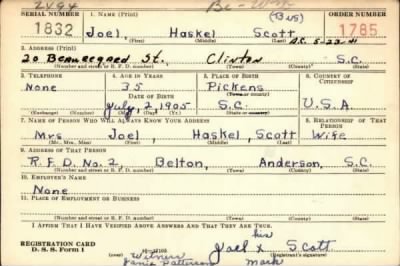 2494
SERIAL NUMBER 1. NAME (Print) ORDER NUMBER
1832 Joel, Haskel Scott 1785
(First) (Middle) (Last)
2. ADDRESS (Print)
20 Beauregard St. Clinton S.C.
(Number and street or R. F. D. number) (Town) (County) (State)
3. TELEPHONE 4. AGE IN YEARS 5. PLACE OF BIRTH 6. COUNTRY OF CITIZENSHIP
None 35 Pickens
DATE OF BIRTH (Town or county)
July, 2, 1905 S.C. U.S.A.
(Mo.) (Day) (Yr.) (State or country)
7. NAME OF PERSON WHO WILL ALWAYS KNOW YOUR ADDRESS 8. RELATIONSHIP OF THAT PERSON
Mrs Joel, Haskel, Scott Wife
(Mr., Mrs., Miss) (First) (Middle) (Last)
9. ADDRESS OF THAT PERSON
R.F.D. No. 2, Belton, Anderson, S.C.
(Number and street or R. F. D. number) (Town) (County) (State)
10. EMPLOYER'S NAME
None
11. PLACE OF EMPLOYMENT OR BUSINESS
(Number and street or R. F. D. number) (Town) (County) (State)
I AFFIRM THAT I HAVE VERIFIED ABOVE ANSWERS AND THAT THEY ARE TRUE.
his
REGISTRATION CARD Joel x Scott
D. S. S. Form 1 (Registrant's signature)
Witness mark
Patterson